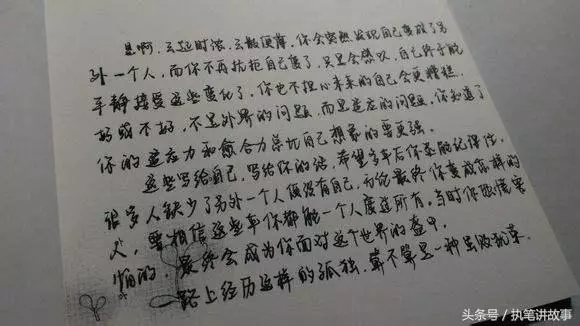 是啊,云起时浓,云散便薄,你会突然发现自己变成了另
外一个人,而你不再抗拒自己变了,只是会感叹,自己终于能
平静接受这些变化了,你也不担心未来的自己会更糟糕,
好或不好,不是外界的问题,而是适应的问题,你知道了
你的适应力和愈合力总比自己想象的要更强。
这些写给自己,写给你的话,希望多年后你还能记得住,
很多人缺少了另外一个人便没有自己,无论最终你变成怎样的
人,要相信这些年你都能一个人度过所有,当时你很厉害
怕的,最终会成为你面对这个世界的盔甲
一路上经历这样的孤独,算不算是一种
头条号 / 执笔讲故事